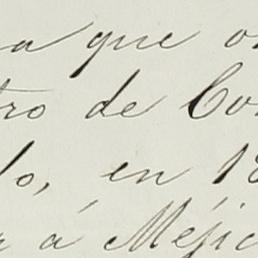 a que o
tro de Co
do, en 18
r á Méjic